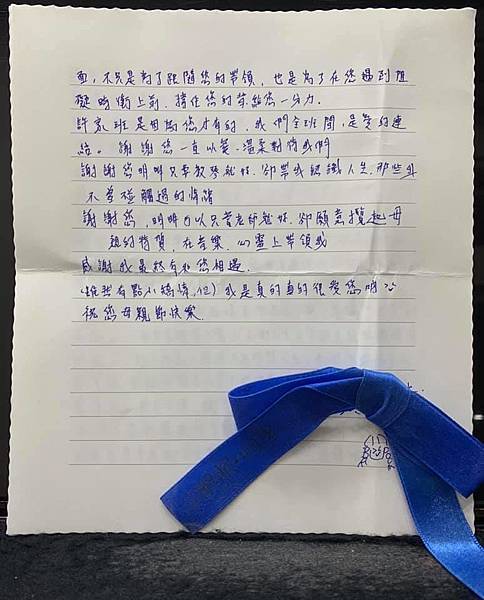 面，不只是為了跟隨您的帶領，也是為了在您遇到阻
礙時衝上前，擋在您的前給您一分力。
許家班是因為您才有的，我們全班間，是愛的連
結。謝謝您一直以愛、溫柔對待我們
謝謝您明明只要教琴就好，卻帶我認識人生，那些我
不曾碰觸過的情緒
謝謝您，明明可以只當老師就好，卻願意攬起母
親的特質，在音樂、心靈上帶領我
感謝我最終有和您相遇。
(雖然有點小矯情，但) 我是真的真的很愛您唷
祝您母親節快樂